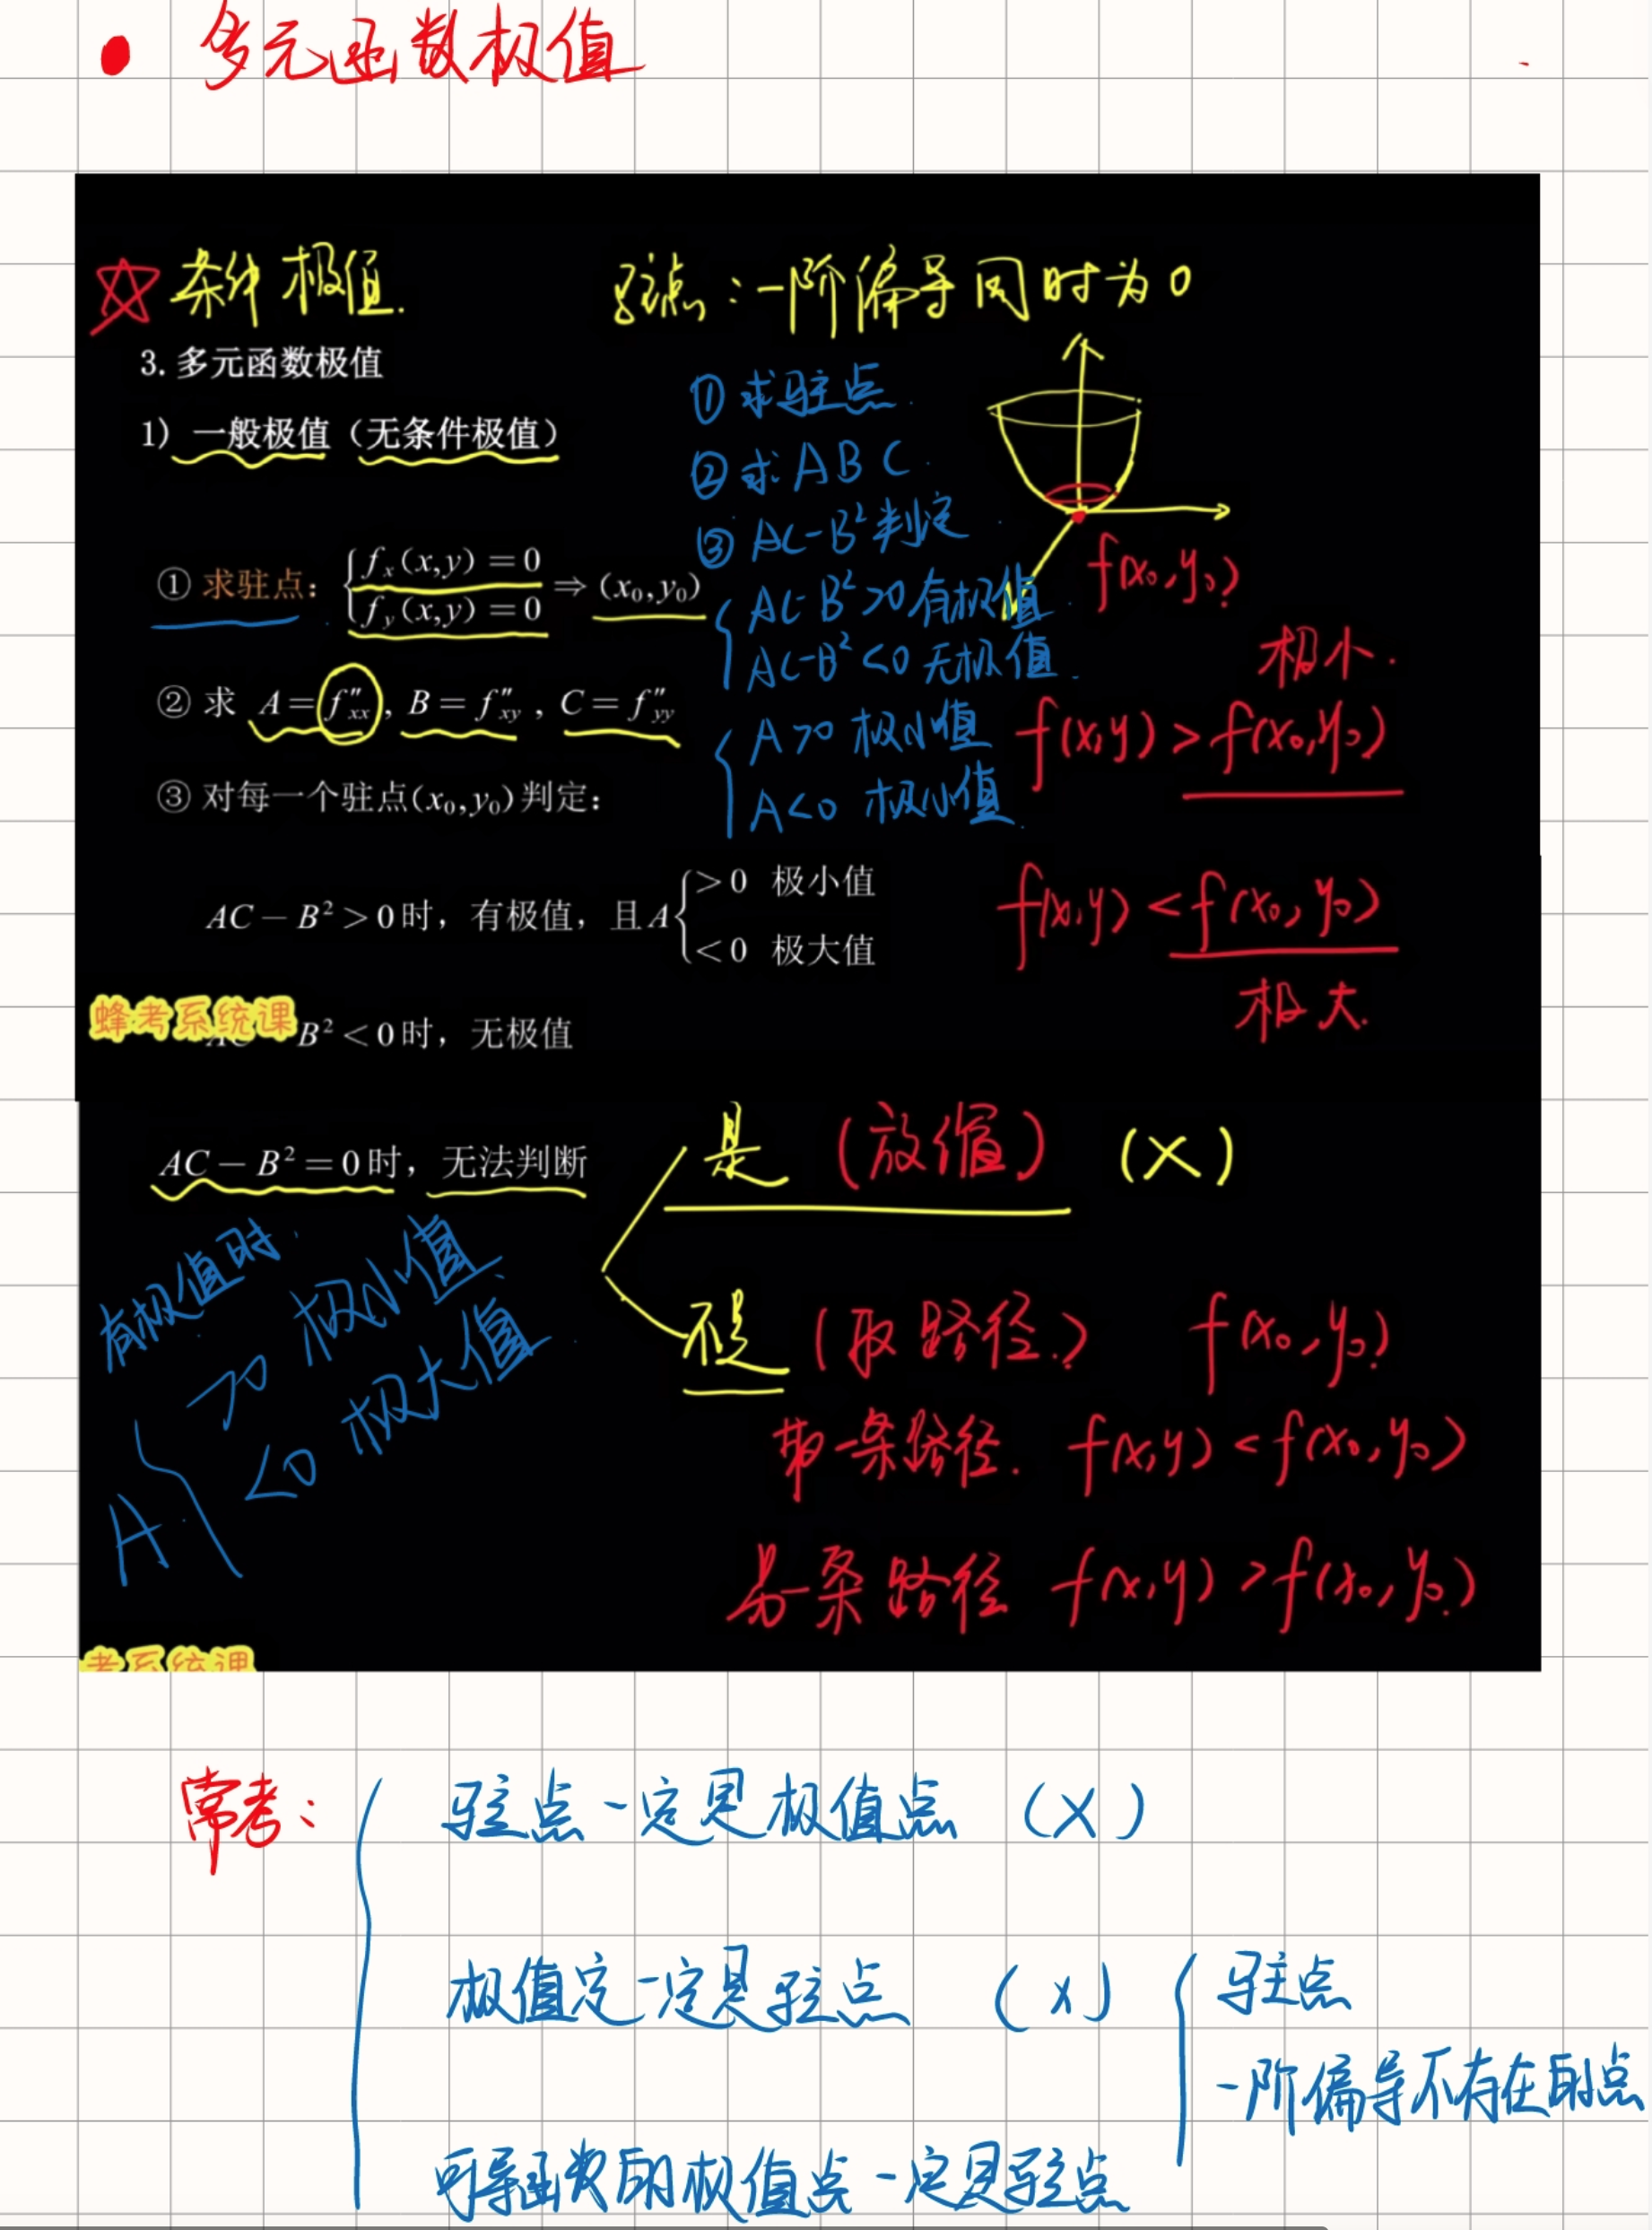 多元函数极值
条件极值.
驻点:一阶偏导同时为0
3. 多元函数极值
1) 一般极值（无条件极值）
① 求驻点.
② 求 A B C.
③ AC-B²判定
AC-B²>0 有极值
AC-B²<0 无极值.
A>0 极小值
A<0 极小值.
f(x₀,y₀)
① 求驻点: { fₓ(x,y)=0
f_y(x,y)=0 ⇒ (x₀,y₀)
② 求 A=f″ₓₓ, B=f″ₓy, C=f″yy
③ 对每一个驻点(x₀,y₀)判定:
极小.
f(x,y) > f(x₀,y₀)
AC－B²>0时，有极值，且A { >0 极小值
<0 极大值
f(x,y) < f(x₀,y₀)
极大.
蜂考系统课
B²<0时，无极值
AC－B²=0时，无法判断
是 (放缩) (X)
不是 (取路径.) f(x₀,y₀)
一条路径. f(x,y) < f(x₀,y₀)
另一条路径 f(x,y) > f(x₀,y₀)
有极值时.
A { >0 极小值
<0 极大值.
考系统课
常考:
驻点一定是极值点 (X)
极值定一定是驻点 (X)
驻点
一阶偏导不存在的点
可导函数的极值点一定是驻点